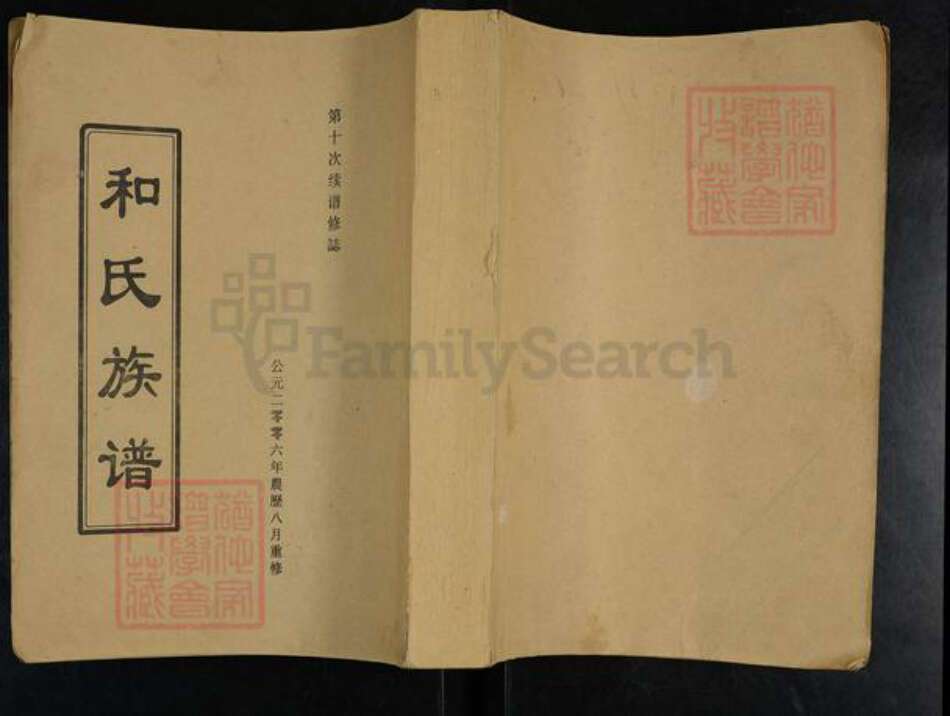 和氏族谱
第十次续谱修誌
公元二零零六年農歷八月重修
FamilySearch
猶他家譜學會特藏
猶他家譜學會特藏